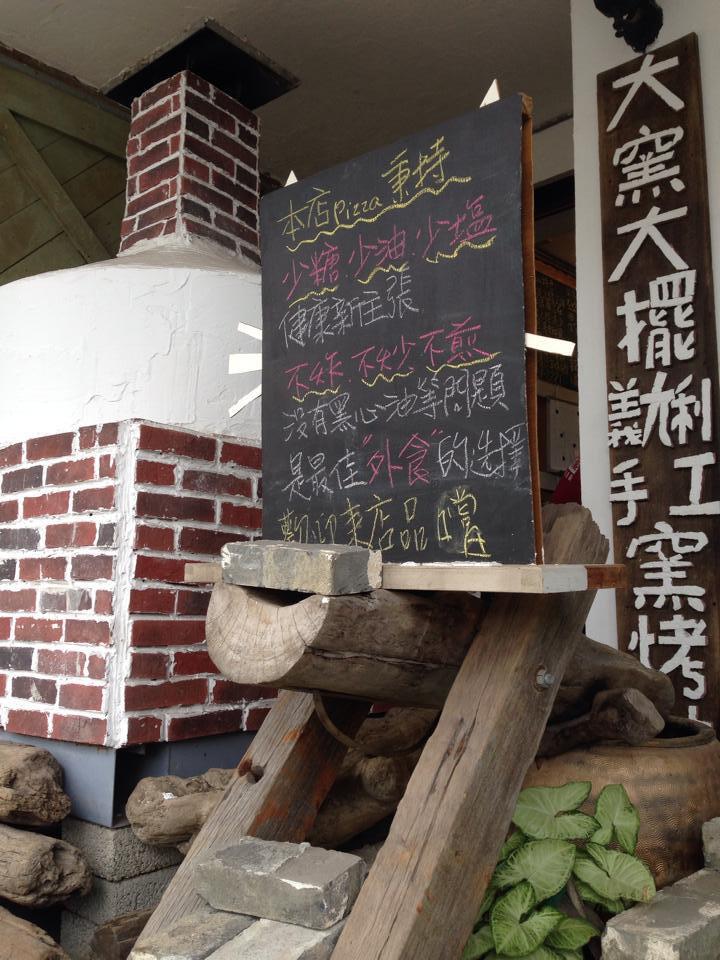 本店Pizza秉持
少糖.少油.少塩
健康新主張
不炸.不炒.不煎
沒有黑心池等問題
是最佳"外食"的選擇
歡迎來店品噹
大窯大擺義大利手工窯烤